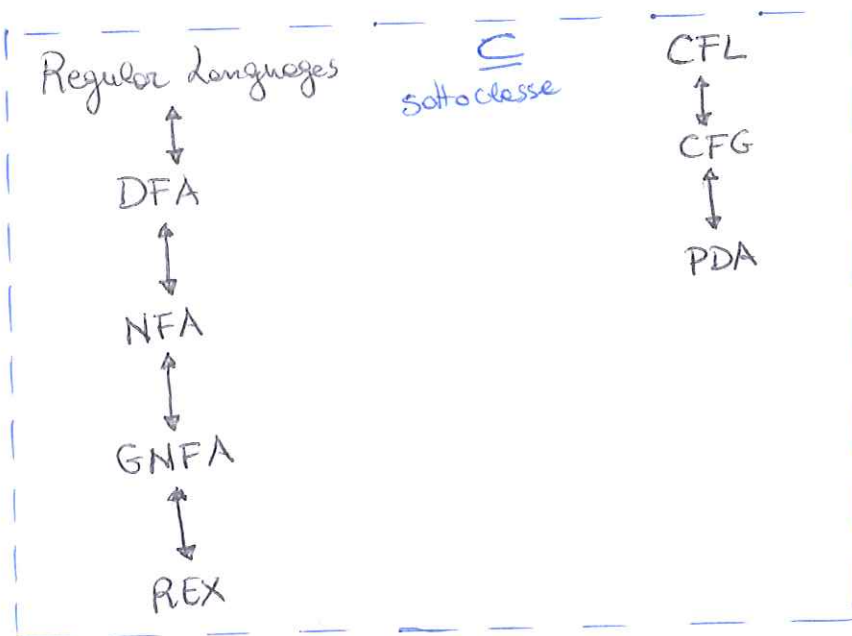 Regular Languages
DFA
NFA
GNFA
REX
⊆
sottoclasse
CFL
CFG
PDA